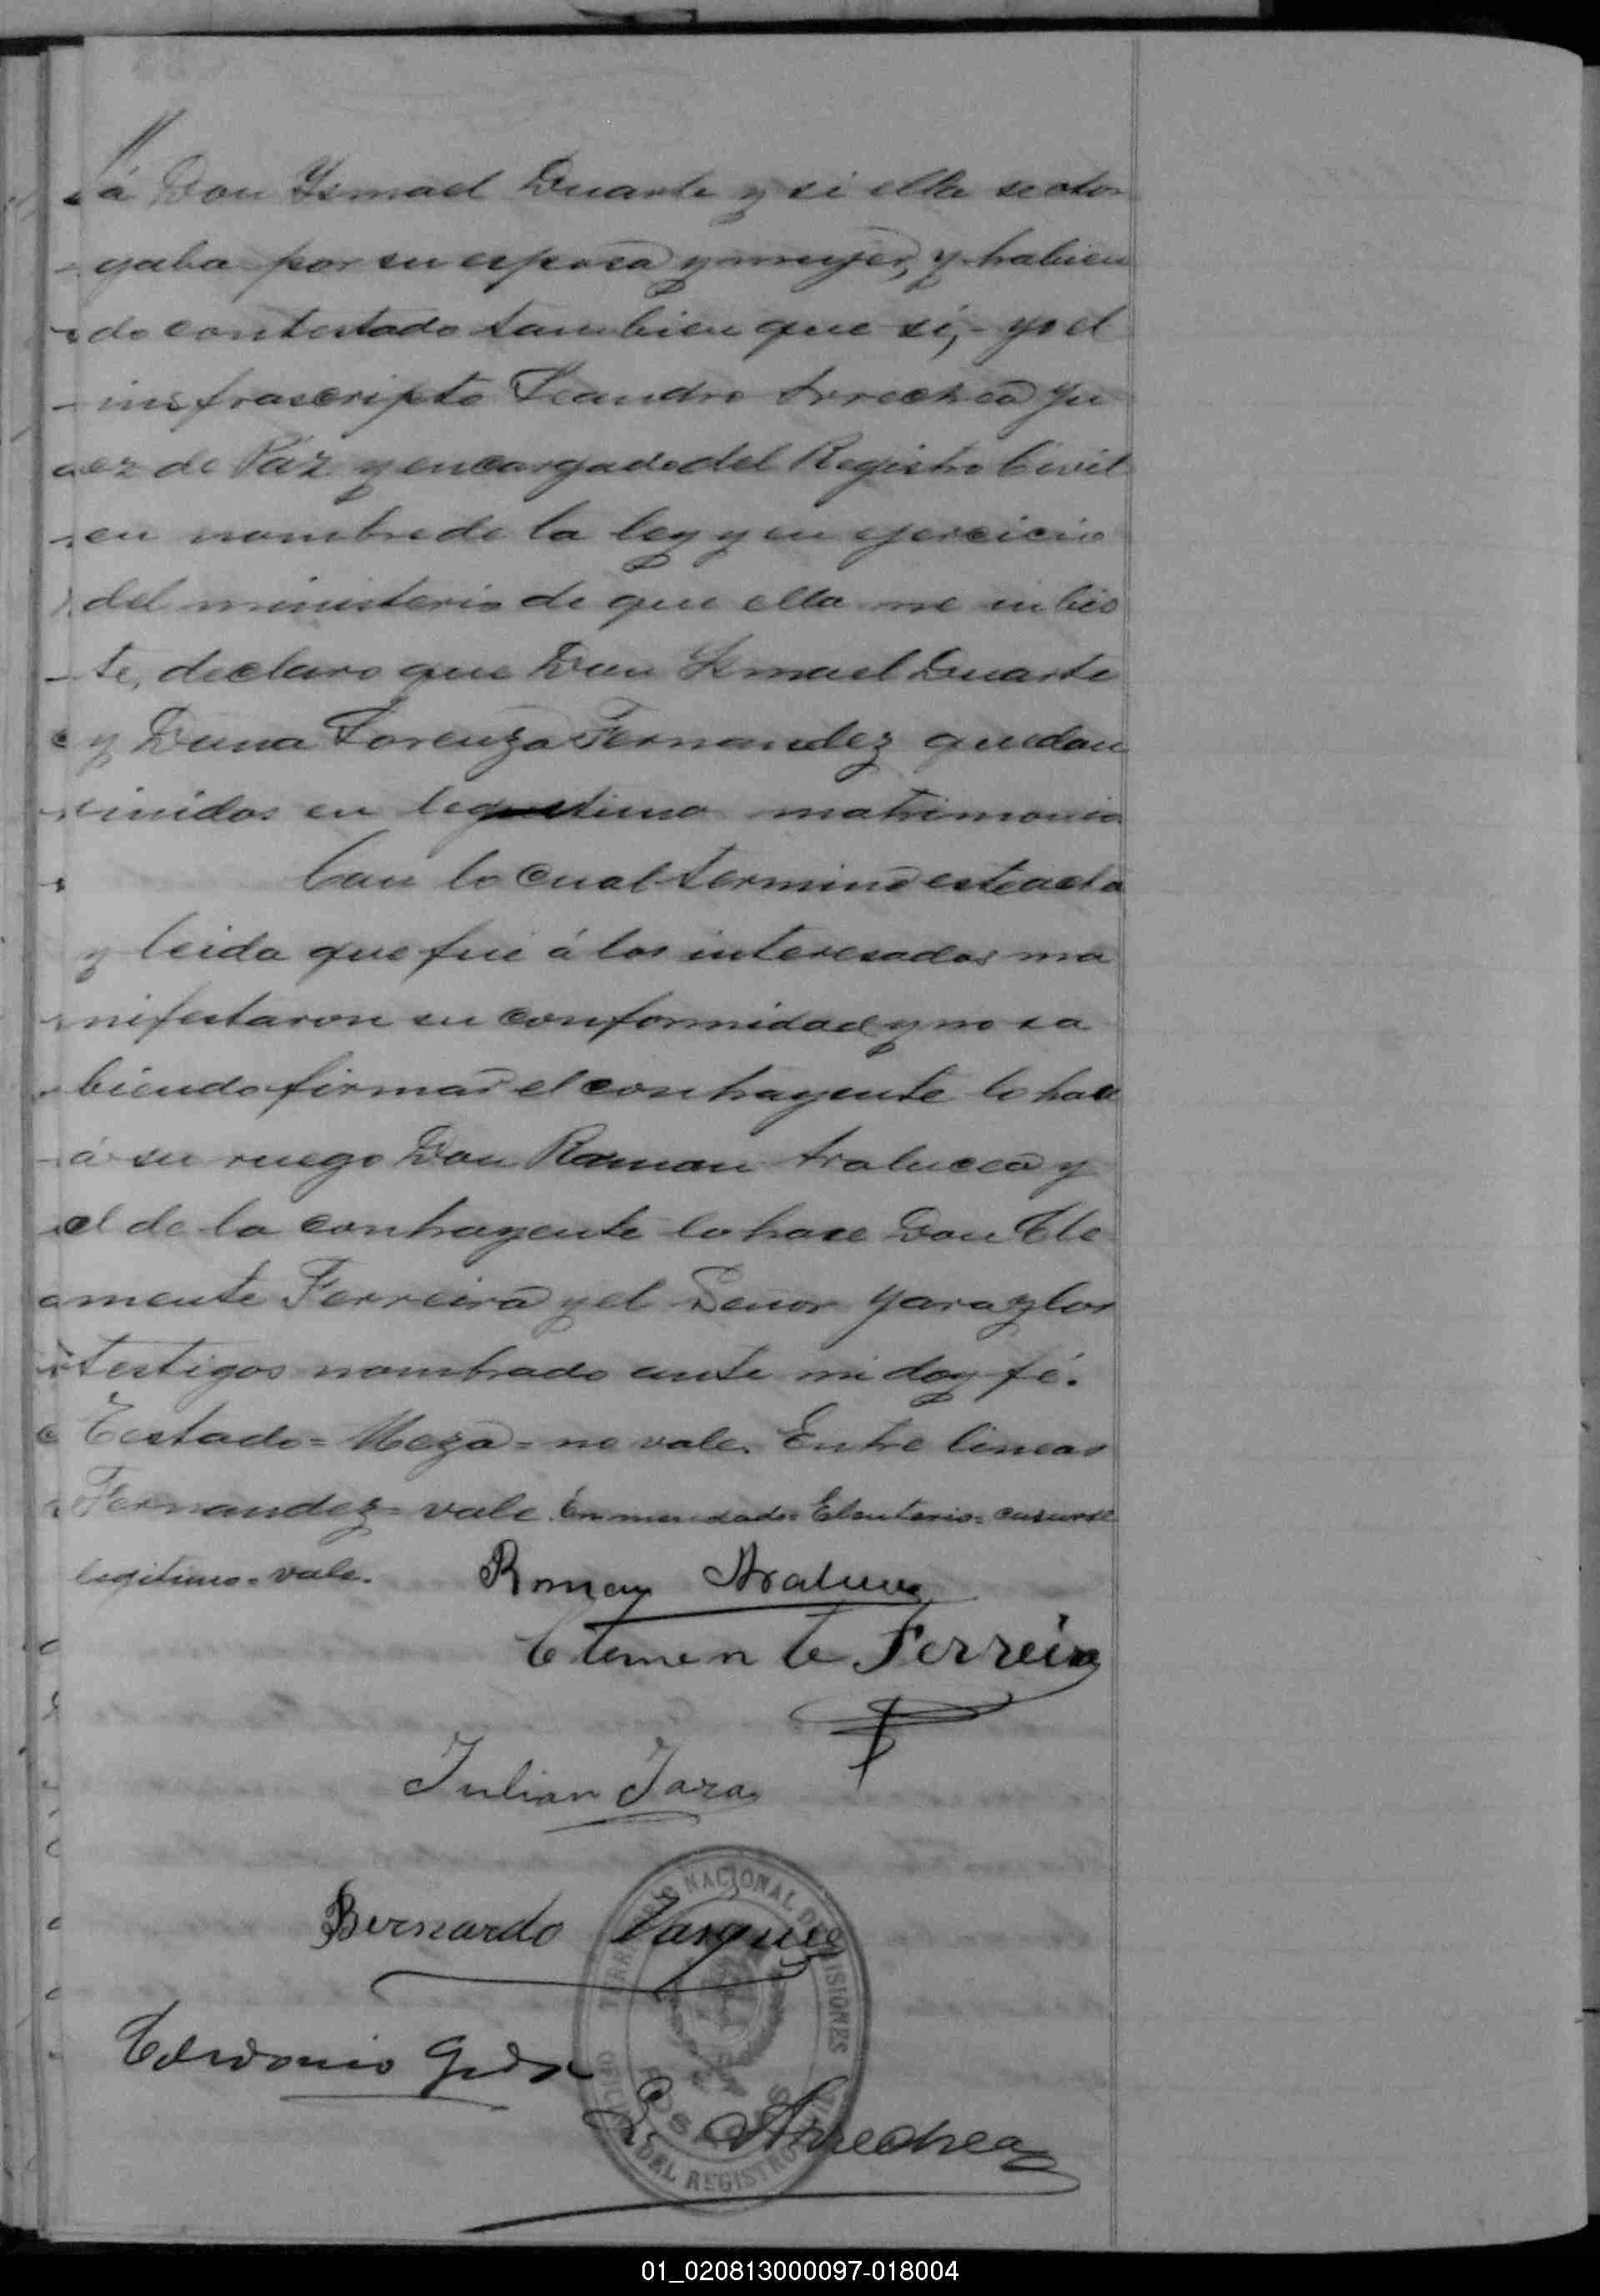 á Don Ysmael Duarte y si ella se otor
gaba por su esposa y mujer, y habien
do contestado tambien que si, - yo el
infrascripto Leandro Arrechea Ju
ez de Paz y encargado del Registro Civil
en nombre de la ley y en ejercicio
del ministerio de que ella me inbis
te, declaro que Don Ysmael Duarte
y Duna Lorenza Fernandez quedan
unidos en legitimo matrimonio
Con lo cual termino este acta
y leida que fue á los interesados ma
nifestaron su conformidad y no sa
biendo firmar el contrayente lo hace
á su ruego Don Roman Aralucea y
el de la contrayente lo hace Don Cle
mente Ferreira y el Señor Yara y los
testigos nombrado ante mi doy fé.
Testado = Meza = no vale. Entre lineas
Fernandez = vale. Enmendado = Eleuterio =
legitimo = vale. Roman Aralucea
Clemente Ferreira
Julian Jara
Bernardo Vasquez
L. Arrechea
TERRITORIO NACIONAL DE MISIONES
OFICINA DEL REGISTRO CIVIL
POSADAS
01_020813000097-018004